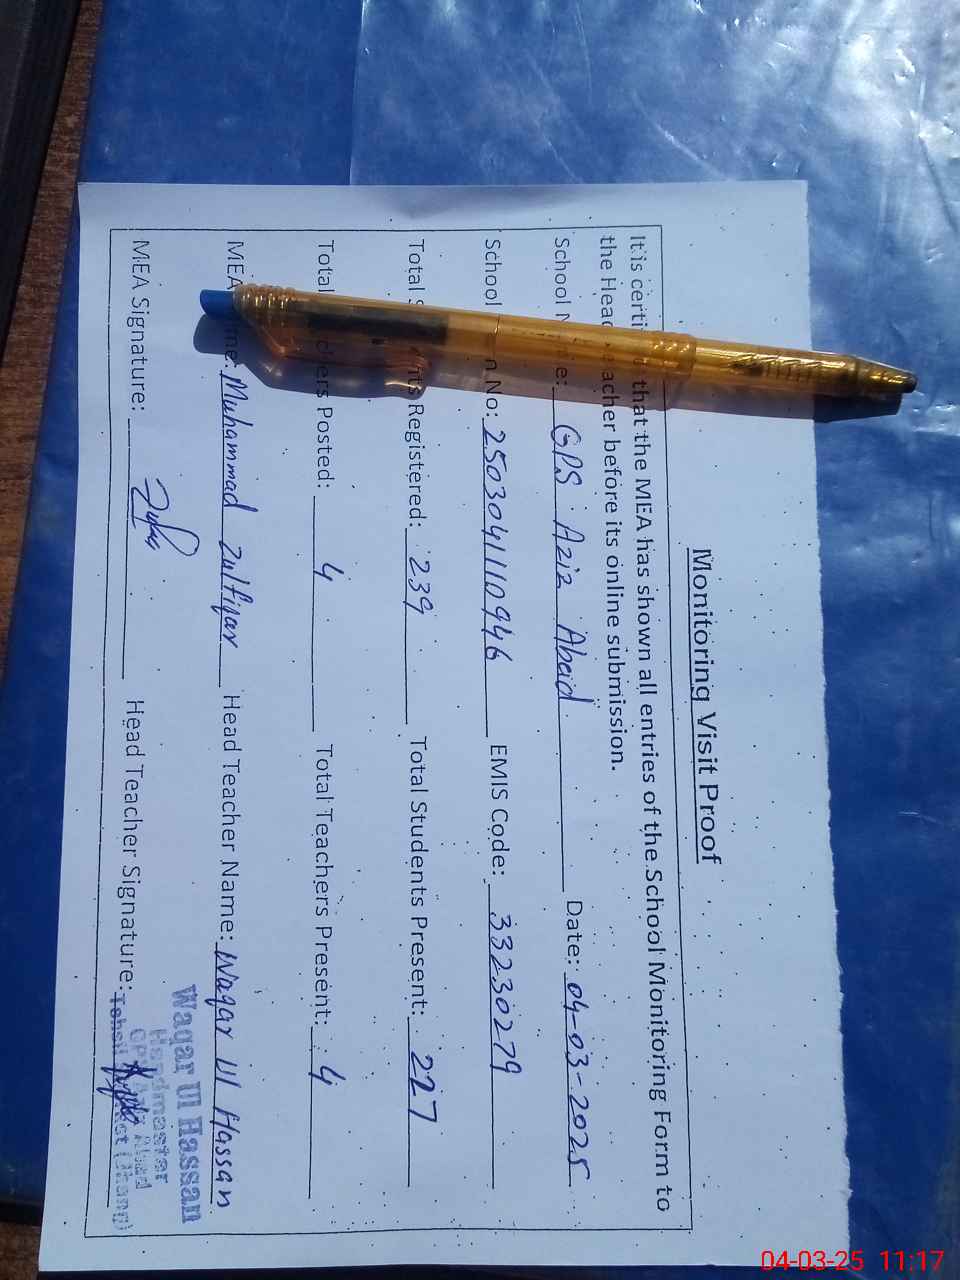 Monitoring Visit Proof
It is certi that the MEA has shown all entries of the School Monitoring Form to
the Head acher before its online submission.
School N e: GPS Aziz Abaid Date: 04-03-2025
School n No: 2503041110946 EMIS Code: 33230279
Total S nts Registered: 239 Total Students Present: 227
Total chers Posted: 4 Total Teachers Present: 4
MEA me: Muhammad Zulfiqar Head Teacher Name: Waqar Ul Hassan
MEA Signature: Head Teacher Signature:
Waqar Ul Hassan
Headmaster
04-03-25 11:17